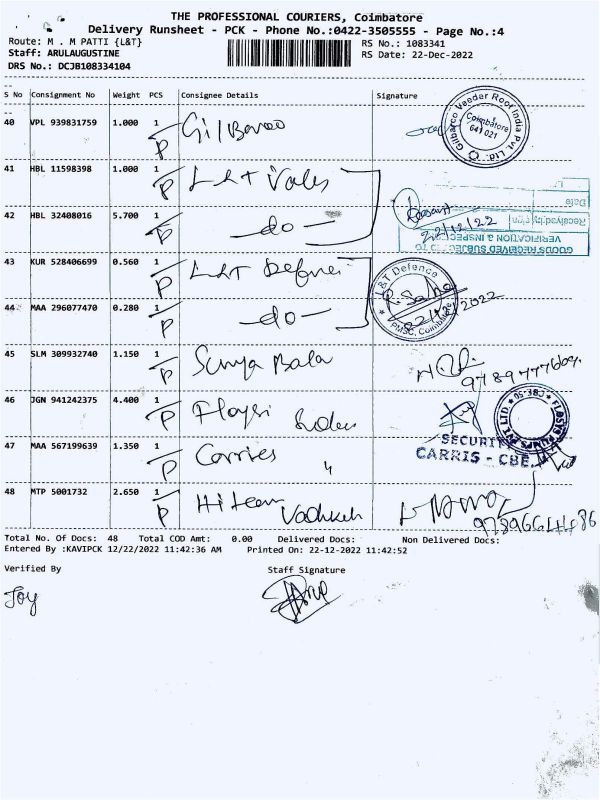 THE PROFESSIONAL COURIERS, Coimbatore
Delivery Runsheet - PCK - Phone No.:0422-3505555 - Page No.:4
Route: M . M PATTI {L&T} RS No.: 1083341
Staff: ARULAUGUSTINE RS Date: 22-Dec-2022
DRS No.: DCJB108334104
S No Consignment No Weight PCS Consignee Details Signature
40 VPL 939831759 1.000 1 P Gilbarco
Gilbarco Veeder Root India Pvt. Ltd.
Coimbatore
641 021
41 HBL 11598398 1.000 1 P L&T Valves
42 HBL 32408016 5.700 1 P -do-
Date
22/12/22
GOODS RECEIVED SUBJECT TO
VERIFICATION & INSPEC
43 KUR 528406699 0.560 1 P L&T Defence
L&T Defence
PMSC, Coimbatore
44 MAA 296077470 0.280 1 P -do-
22/12/2022
45 SLM 309932740 1.150 1 P Surya Bala
46 JGN 941242375 4.400 1 P
FLOSYS PUMPS PVT LTD CBE-50
47 MAA 567199639 1.350 1 P Carries "
SECURITY
CARRIS - CBE
48 MTP 5001732 2.650 1 P Hi team
Total No. Of Docs: 48 Total COD Amt: 0.00 Delivered Docs: Non Delivered Docs:
Entered By :KAVIPCK 12/22/2022 11:42:36 AM Printed On: 22-12-2022 11:42:52
Verified By Staff Signature
Joy